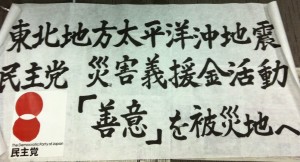 東北地方太平洋沖地震
民主党 災害義援金活動
「善意」を被災地へ
The Democratic Party of Japan
民主党